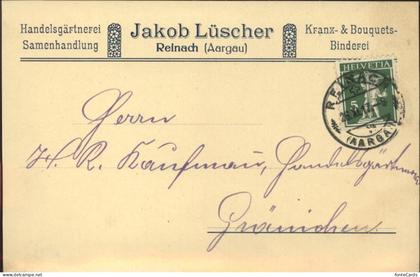 Handelsgärtnerei
Samenhandlung
Jakob Lüscher
Reinach (Aargau)
Kranx- & Bouquets-
Binderei
HELVETIA
5
REINACH
(AARGAU)
Herrn
H. R. Kaufmann, Handelsgärtner
Gränichen